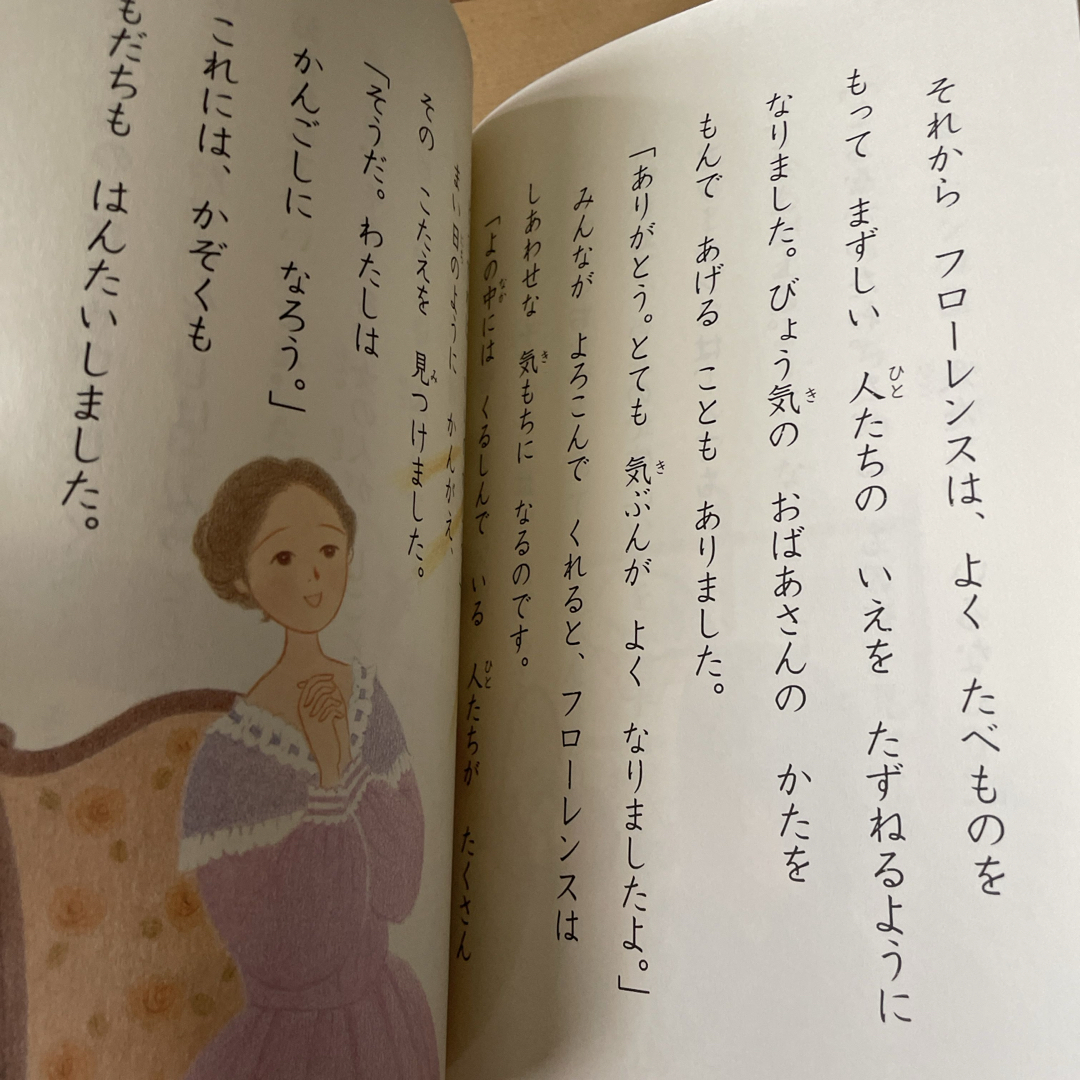 それから フローレンスは、よく たべものを
もって まずしい 人たちの いえを たずねるように
なりました。びょう気の おばあさんの かたを
もんで あげる ことも ありました。
「ありがとう。とても 気ぶんが よく なりましたよ。」
みんなが よろこんで くれると、フローレンスは
しあわせな 気もちに なるのです。
「よの中には くるしんで いる 人たちが たくさん
まい日のように かんがえ、
その こたえを 見つけました。
「そうだ。わたしは
かんごしに なろう。」
これには、かぞくも
もだちも はんたいしました。